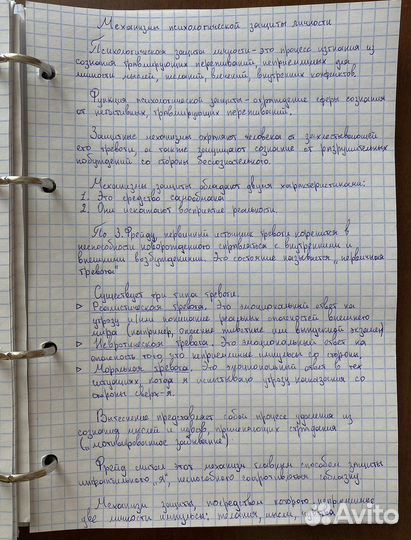 Механизмы психологической защиты личности
Психологическая защита личности - это процесс изгнания из
сознания травмирующих переживаний, неприемлемых для
личности мыслей, желаний, влечений, внутренних конфликтов.
Функция психологической защиты - ограждение сферы сознания
от негативных, травмирующих переживаний.
Защитные механизмы охраняют человека от захлестывающей
его тревоги, а также защищают сознание от разрушительных
побуждений со стороны бессознательного.
Механизмы защиты обладают двумя характеристиками:
1. Это средство самообмана
2. Они искажают восприятие реальности
По З. Фрейду, первичный источник тревоги коренится в
неспособности новорожденного справляться с внутренними и
внешними возбуждениями. Это состояние называется "первичная
тревога"
Существует три типа тревоги
▷ Реалистическая тревога. Это эмоциональный ответ на
угрозу и/или понимание реальных опасностей внешнего
мира (например, опасные животные или выпускной экзамен)
▷ Невротическая тревога. Это эмоциональный ответ на
опасность того, что неприемлемые импульсы со стороны
▷ Моральная тревога. Это эмоциональный ответ в тех
ситуациях, когда я испытываю угрозу наказания со
стороны сверх-я.
Вытеснение представляет собой процесс удаления из
сознания мыслей и чувств, причиняющих страдания
("мотивированное забывание")
Фрейд считал этот механизм главным способом защиты
инфантильного "я", неспособного сопротивляться соблазну.
Механизм защиты, посредством которого неприемлемо
две личности импульсы: желания, мысли, чувства
Avito